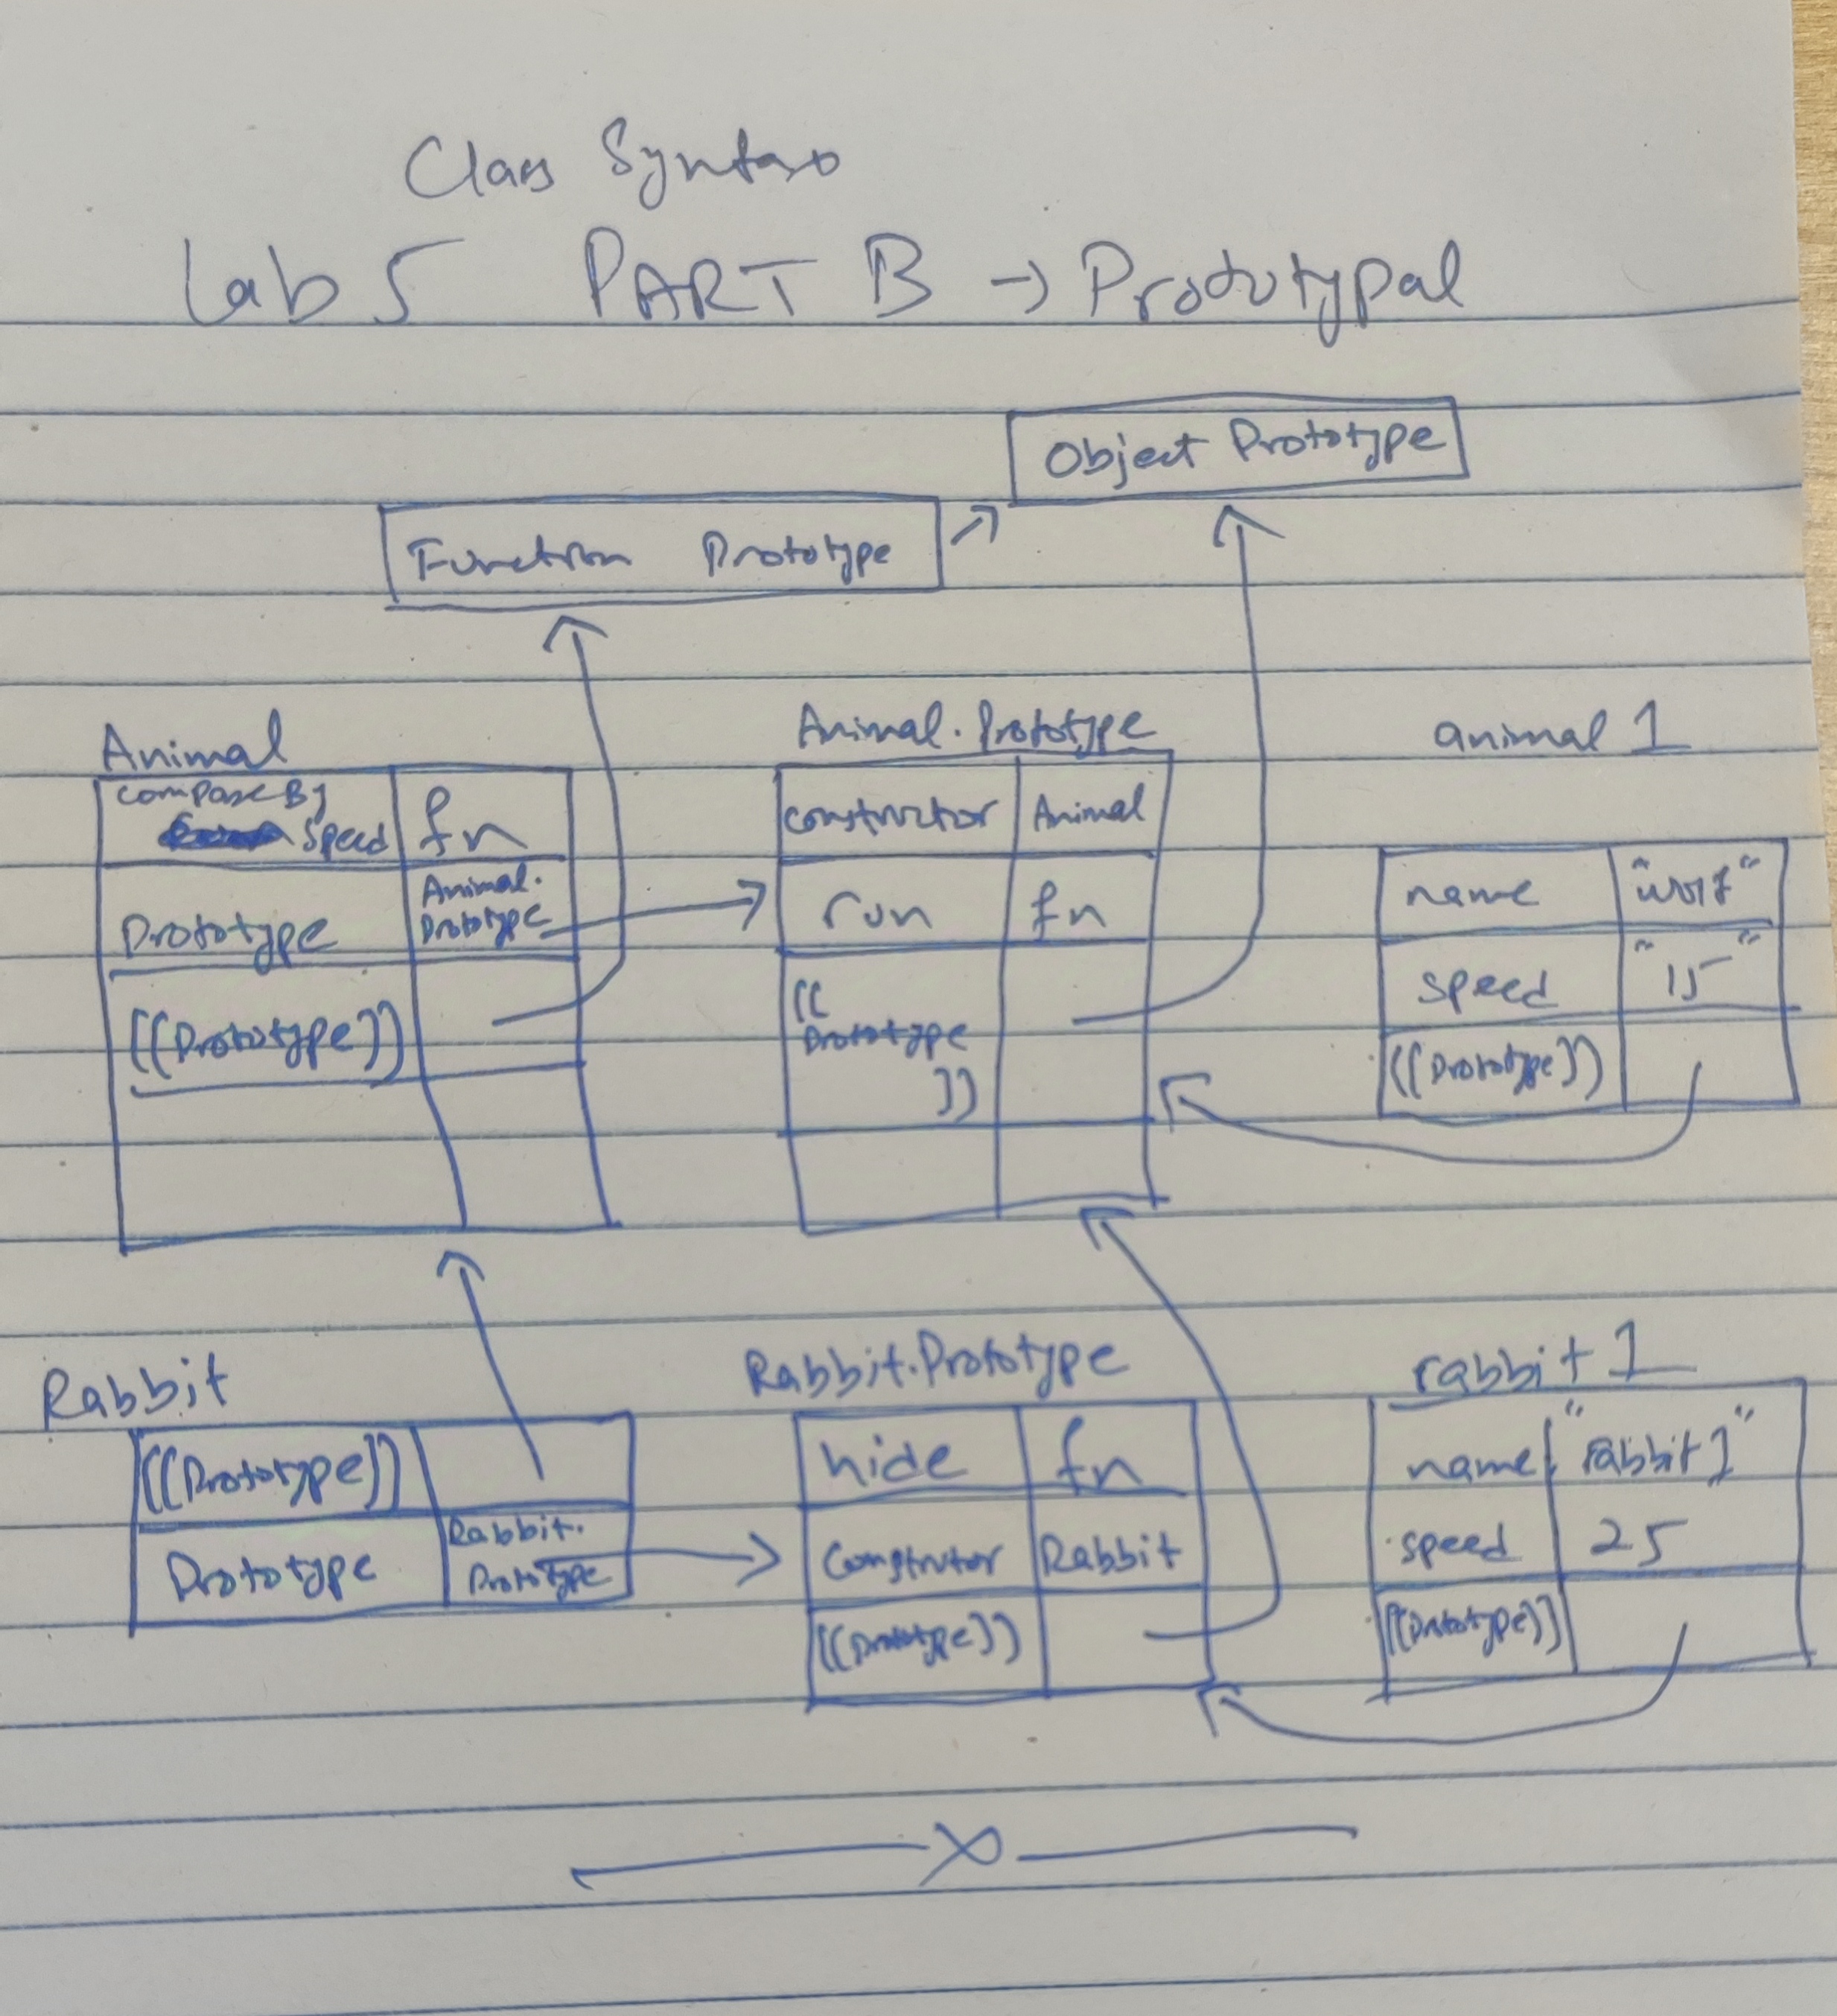 Class Syntax
Lab 5 PART B → Prototypal
Object Prototype
Function Prototype
Animal
compareBy Speed fn
Prototype Animal. Prototype
[[Prototype]]
Animal. Prototype
constructor Animal
run fn
[[
Prototype
]]
animal 1
name "wolf"
speed "15"
[[Prototype]]
Rabbit
[[Prototype]]
Prototype Rabbit. Prototype
Rabbit.Prototype
hide fn
Construtor Rabbit
[[Prototype]]
rabbit 1
name "rabbit1"
speed 25
[[Prototype]]